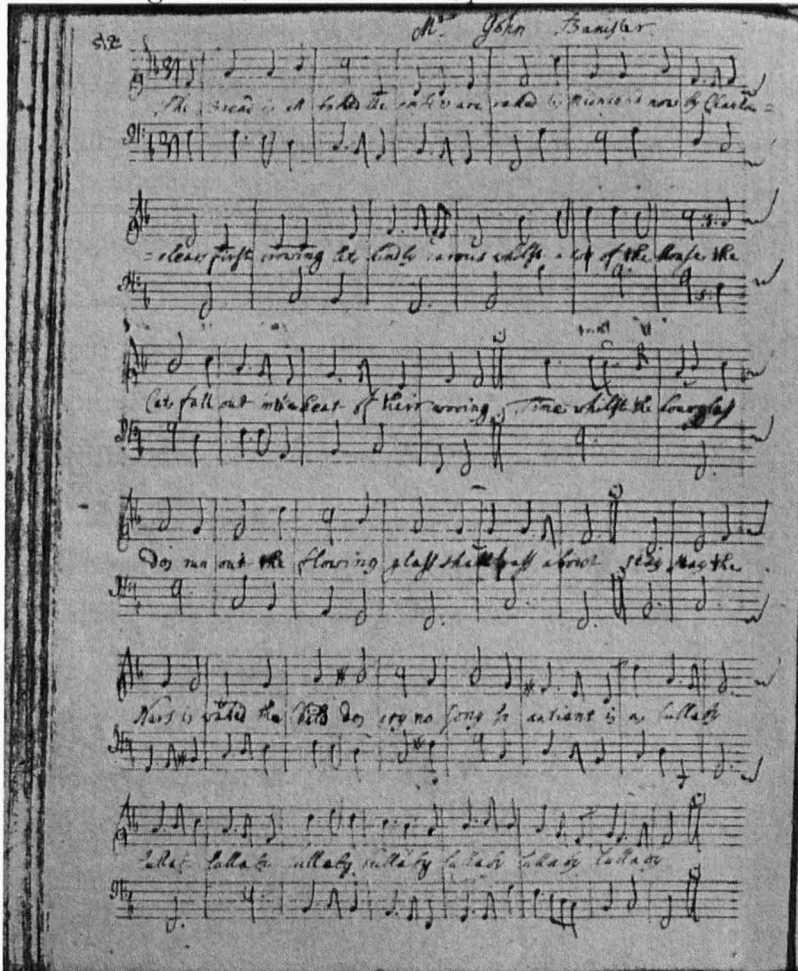 Mr. John Banister.
The bread is all baked the embers are raked is now by Chante =
= cleers first crowing let kindly carous whilst a top of the house the
Cats fall out in the heat of their wooing, Time whilst the hourglass
dos run out the flowing glass shall pass about stay stay the
Nurs is waked the Child dos cry no song so antient is as lullaby
lullaby lullaby lullaby lullaby lullaby lullaby lullaby